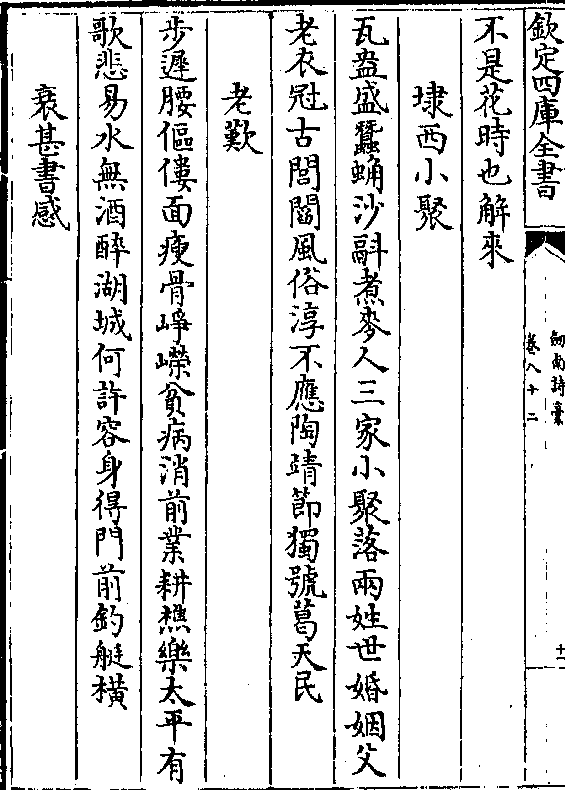 欽定四庫全書
劒南詩藁
卷八十二
十一
不是花時也解來
埭西小聚
瓦盎盛蠶蛹沙鬴煮麥人三家小聚落兩姓世婚姻父
老衣冠古閭閻風俗淳不應陶靖節獨號葛天民
老歎
步遲腰傴僂面瘦骨崢嶸貧病消前業耕樵樂太平有
歌悲易水無酒醉湖城何許容身得門前釣艇橫
衰甚書感